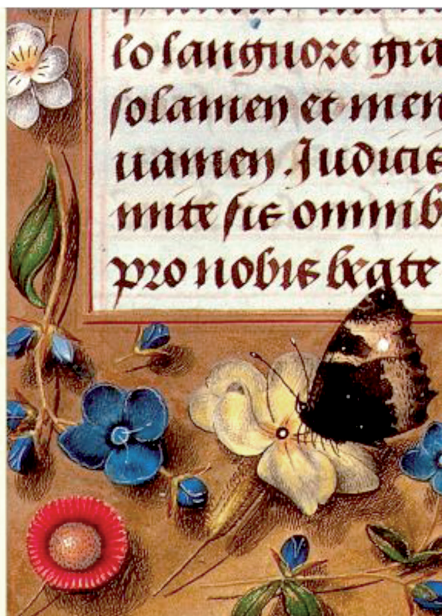 lo languore gra
solamen et men
uamen. Iudicis
mite sis omnib
pro nobis beate